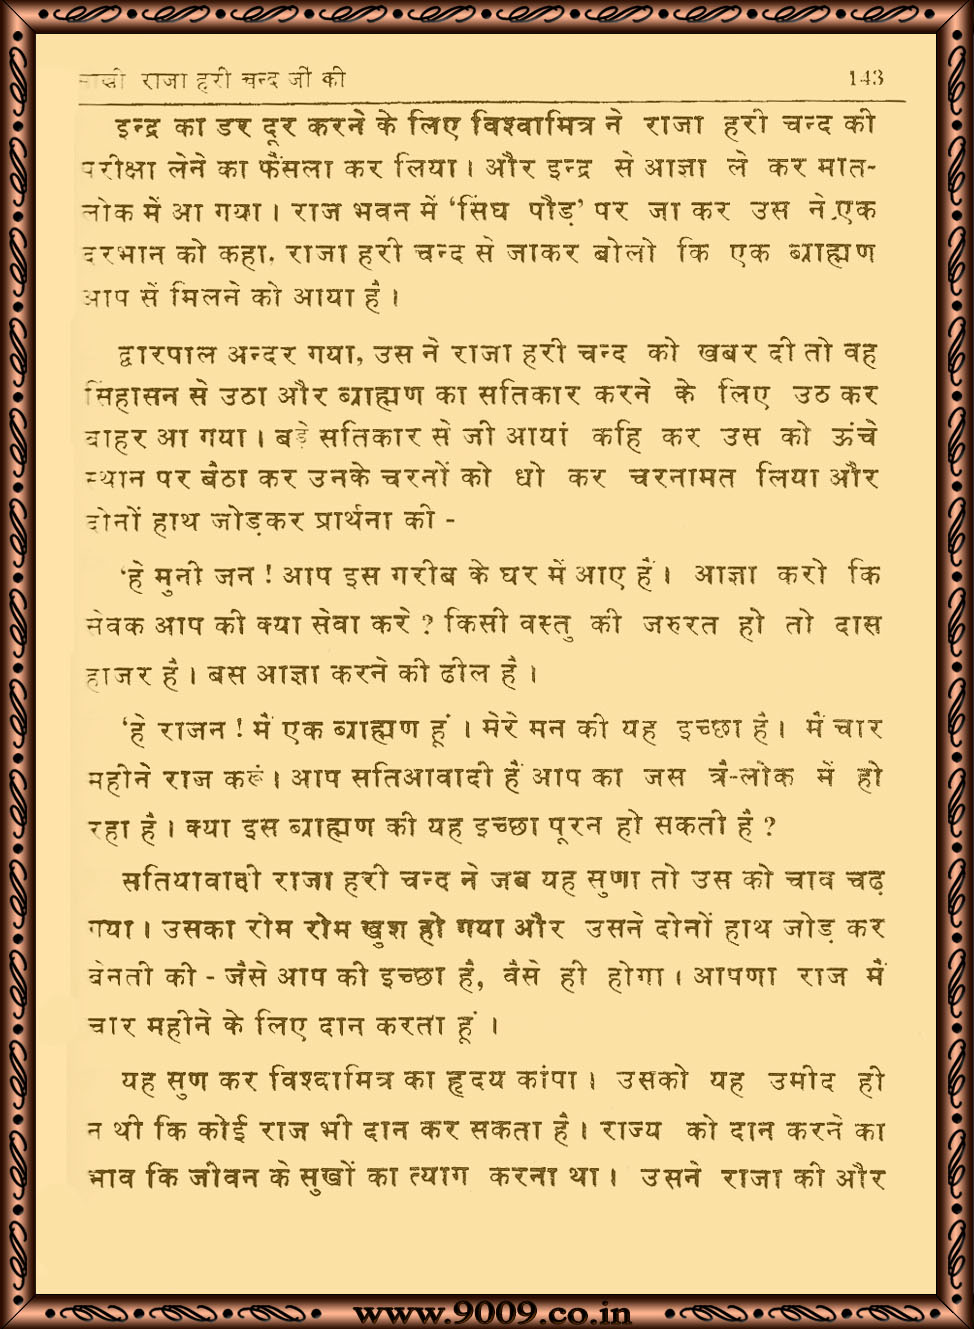 साखी राजा हरी चन्द जी की 143
इन्द्र का डर दूर करने के लिए विश्वामित्र ने राजा हरी चन्द की
परीक्षा लेने का फैंसला कर लिया। और इन्द्र से आज्ञा ले कर मात-
लोक में आ गया। राज भवन में ‘सिंघ पौड़’ पर जा कर उस ने एक
दरभान को कहा, राजा हरी चन्द से जाकर बोलो कि एक ब्राह्मण
आप सें मिलने को आया है।
द्वारपाल अन्दर गया, उस ने राजा हरी चन्द को खबर दी तो वह
सिंहासन से उठा और ब्राह्मण का सतिकार करने के लिए उठ कर
बाहर आ गया। बड़े सतिकार से जी आयां कहि कर उस को ऊंचे
स्थान पर बैठा कर उनके चरनों को धो कर चरनामत लिया और
दोनों हाथ जोड़कर प्रार्थना की -
‘हे मुनी जन ! आप इस गरीब के घर में आए हैं। आज्ञा करो कि
सेवक आप की क्या सेवा करे ? किसी वस्तु की जरुरत हो तो दास
हाजर है। बस आज्ञा करने की ढील है।
‘हे राजन ! मैं एक ब्राह्मण हूं । मेरे मन की यह इच्छा है। मैं चार
महीने राज करूं। आप सतिआवादी हैं आप का जस त्रै-लोक में हो
रहा है। क्या इस ब्राह्मण की यह इच्छा पूरन हो सकती है ?
सतियावादी राजा हरी चन्द ने जब यह सुणा तो उस को चाव चढ़
गया। उसका रोम रोम खुश हो गया और उसने दोनों हाथ जोड़ कर
बेनती की - जैसे आप की इच्छा है, वैसे ही होगा। आपणा राज मैं
चार महीने के लिए दान करता हूं ।
यह सुण कर विश्वामित्र का हृदय कांपा। उसको यह उमीद ही
न थी कि कोई राज भी दान कर सकता है। राज्य को दान करने का
भाव कि जीवन के सुखों का त्याग करना था। उसने राजा की और
www.9009.co.in